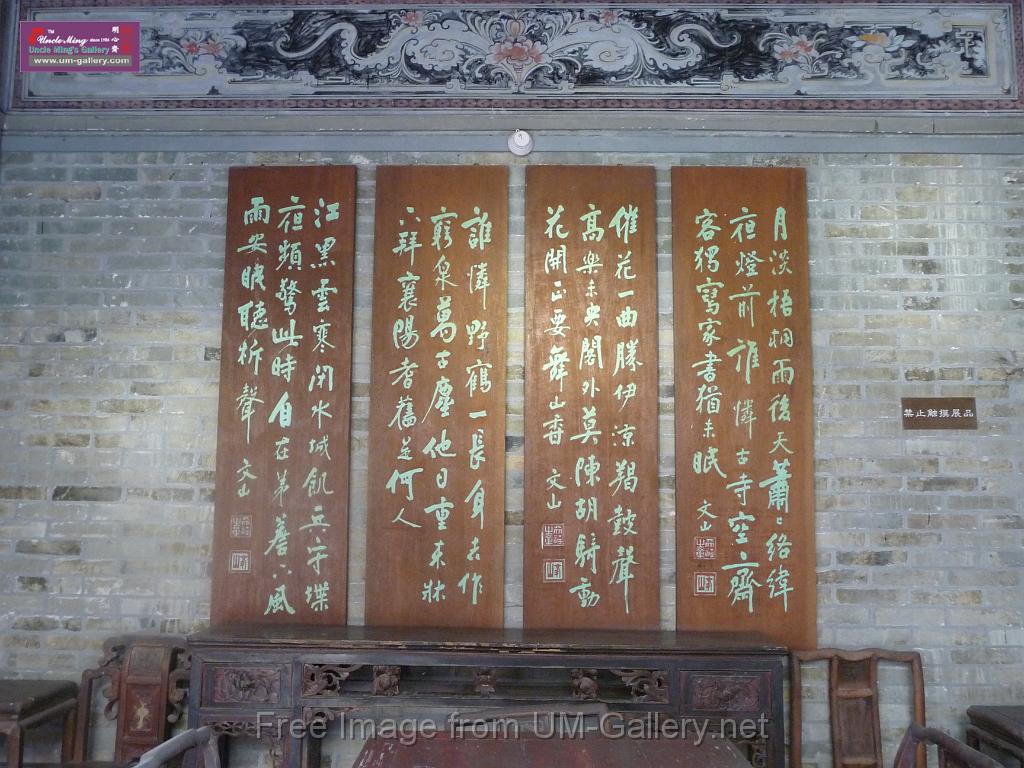 TM
Uncle Ming
since 1984
Uncle Ming's Gallery
明心齋
www.um-gallery.com
月淡梧桐雨後天蕭〻絡緯
夜燈前誰憐古寺空齋
客獨寫家書猶未眠 文山
催花一曲勝伊涼羯鼓聲
高樂未央閣外莫陳胡騎動
花開正要舞山香 文山
誰憐野鶴一長身去作
窮泉萬古塵他日重来牀
下拜襄陽耆舊是何人
江黑雲寒閉水城飢兵守堞
夜頻驚此時自在茅簷下風
雨安眠聽柝聲 文山
禁止触摸展品
Free Image from UM-Gallery.net